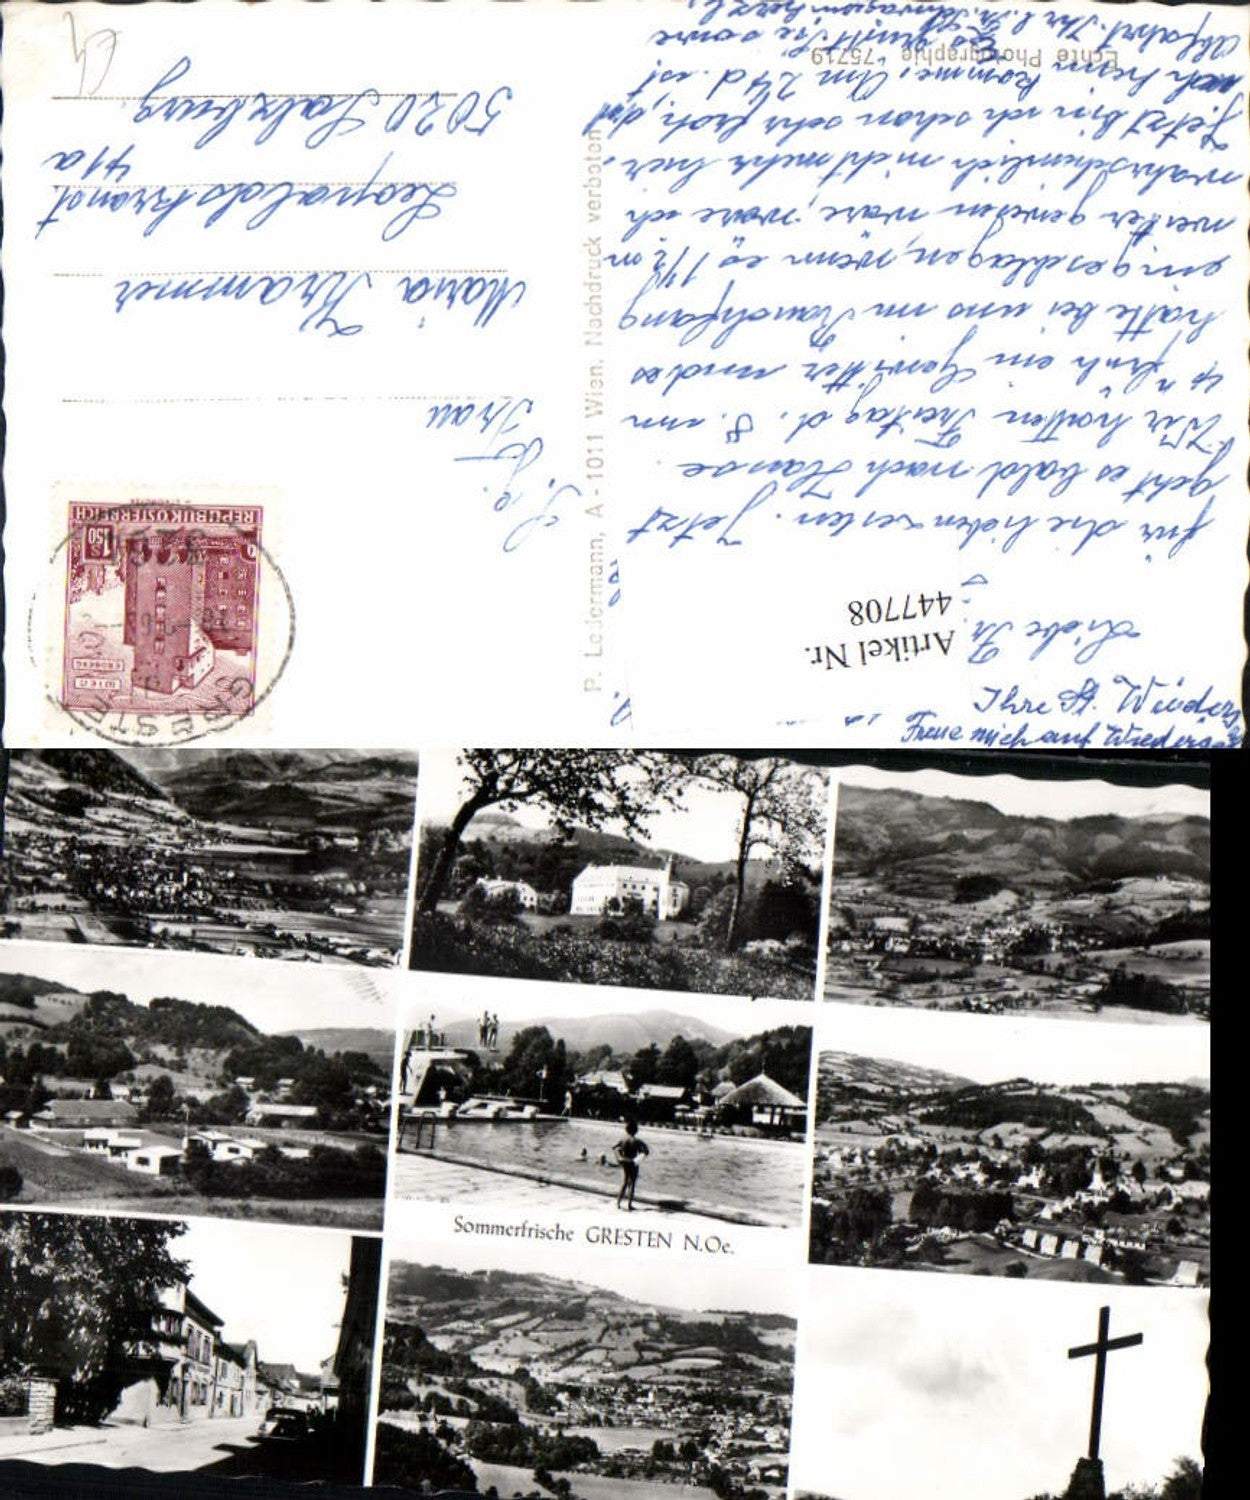 Freue mich auf Wieder
Ihre
Liebe Fr.
Artikel Nr.
447708
für die lieben Zeilen. Jetzt
geht es bald nach Hause.
Wir hatten Freitag d. 8. um
4 h früh ein Gewitter und es
hätte bei uns im Rauchfang
eingeschlagen, wenn es 1 1/2 m
weiter gewesen wäre, wäre ich
wahrscheinlich nicht mehr hier.
Jetzt bin ich schon sehr froh, daß
ich heim komme. Am 24 d. ist
Abfahrt. Es grüßt Sie sowie
Echte Photographie 75719
P. Ledermann, A - 1011 Wien. Nachdruck verboten
REPUBLIK ÖSTERREICH
S 1.50
WIEN
GRESTEN
S. g.
Frau
Maria Krammer
Leopoldskronst
41a
5020 Salzburg.
Sommerfrische GRESTEN N.Oe.